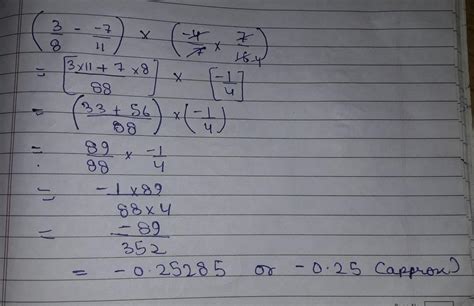 (3/8 - -7/11) × (-4/7 × 7/16 4)
= [3×11 + 7×8/88] × [-1/4]
= (33 + 56/88) × (-1/4)
= 89/88 × -1/4
= -1×89/88×4
= -89/352
= -0.25285 or -0.25 (approx)